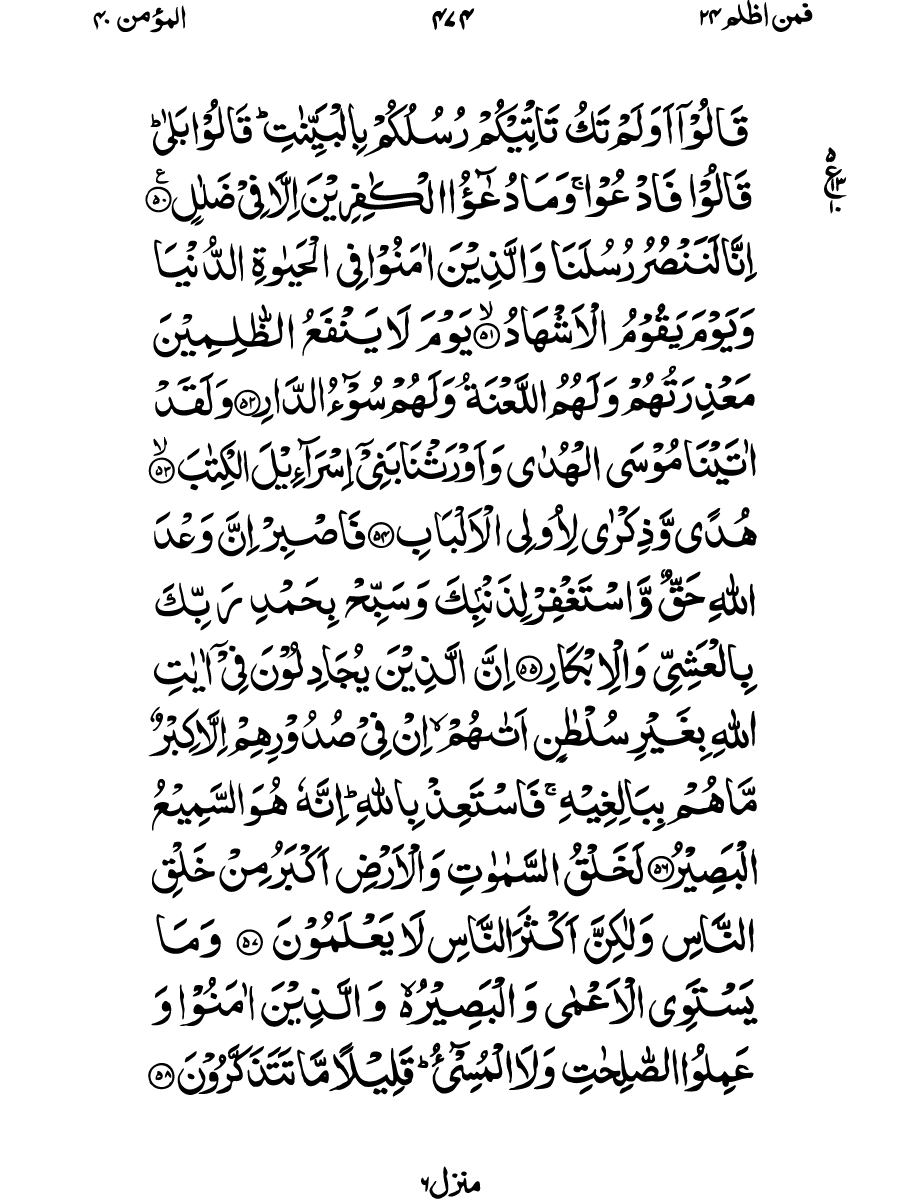 فمن اظلم ۲۴ ۴۷۴ المؤمن ۴۰
قَالُوْۤا اَوَلَمْ تَكُ تَاْتِيْكُمْ رُسُلُكُمْ بِالْبَيِّنٰتِ ؕ قَالُوْا بَلٰى ؕ
قَالُوْا فَادْعُوْا ۚ وَمَا دُعٰٓؤُا الْكٰفِرِيْنَ اِلَّا فِيْ ضَلٰلٍ ﴿۵۰﴾ ع
۵ ع ۱۳ ۱۰
اِنَّا لَنَنْصُرُ رُسُلَنَا وَالَّذِيْنَ اٰمَنُوْا فِى الْحَيٰوةِ الدُّنْيَا
وَيَوْمَ يَقُوْمُ الْاَشْهَادُ ﴿۵۱﴾ ۙ يَوْمَ لَا يَنْفَعُ الظّٰلِمِيْنَ
مَعْذِرَتُهُمْ وَلَهُمُ اللَّعْنَةُ وَلَهُمْ سُوْٓءُ الدَّارِ ﴿۵۲﴾ وَلَقَدْ
اٰتَيْنَا مُوْسَى الْهُدٰى وَاَوْرَثْنَا بَنِيْۤ اِسْرَآءِيْلَ الْكِتٰبَ ﴿۵۳﴾ ۙ
هُدًى وَّذِكْرٰى لِاُولِى الْاَلْبَابِ ﴿۵۴﴾ فَاصْبِرْ اِنَّ وَعْدَ
اللّٰهِ حَقٌّ وَّاسْتَغْفِرْ لِذَنْۢبِكَ وَسَبِّحْ بِحَمْدِ رَبِّكَ
بِالْعَشِىِّ وَالْاِبْكَارِ ﴿۵۵﴾ اِنَّ الَّذِيْنَ يُجَادِلُوْنَ فِيْۤ اٰيٰتِ
اللّٰهِ بِغَيْرِ سُلْطٰنٍ اَتٰىهُمْ ۙ اِنْ فِيْ صُدُوْرِهِمْ اِلَّا كِبْرٌ
مَّا هُمْ بِبَالِغِيْهِ ۚ فَاسْتَعِذْ بِاللّٰهِ ؕ اِنَّهٗ هُوَ السَّمِيْعُ
الْبَصِيْرُ ﴿۵۶﴾ لَخَلْقُ السَّمٰوٰتِ وَالْاَرْضِ اَكْبَرُ مِنْ خَلْقِ
النَّاسِ وَلٰكِنَّ اَكْثَرَ النَّاسِ لَا يَعْلَمُوْنَ ﴿۵۷﴾ وَمَا
يَسْتَوِى الْاَعْمٰى وَالْبَصِيْرُ ۬ۙ وَالَّذِيْنَ اٰمَنُوْا وَ
عَمِلُوا الصّٰلِحٰتِ وَلَا الْمُسِيْٓءُ ؕ قَلِيْلًا مَّا تَتَذَكَّرُوْنَ ﴿۵۸﴾
منزل ۶